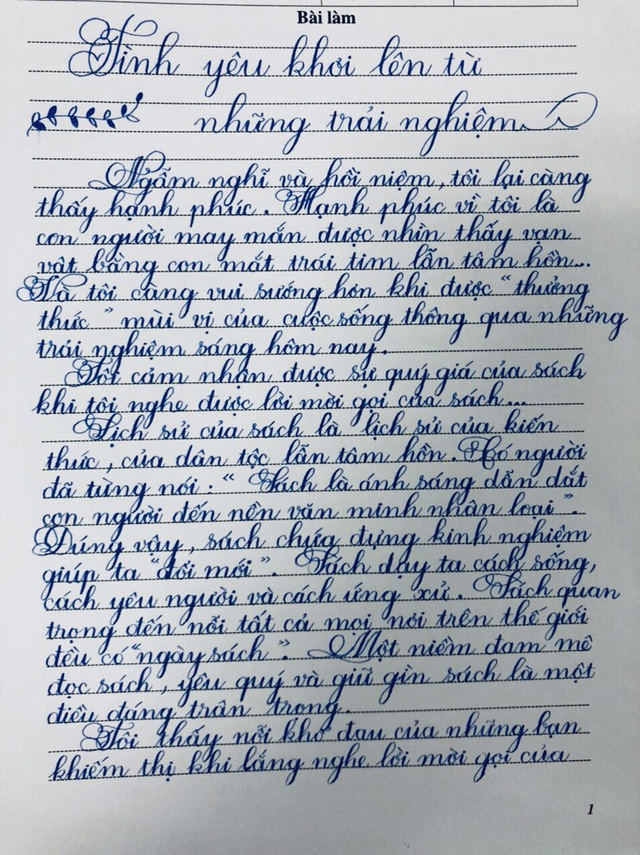 Bài làm
Tình yêu khơi lên từ
những trải nghiệm
Ngẫm nghĩ và hồi niệm, tôi lại càng
thấy hạnh phúc. Hạnh phúc vì tôi là
con người may mắn được nhìn thấy vạn
vật bằng con mắt trái tim lẫn tâm hồn...
Và tôi càng vui sướng hơn khi được "thưởng
thức" mùi vị của cuộc sống thông qua những
trải nghiệm sáng hôm nay.
Tôi cảm nhận được sự quý giá của sách
khi tôi nghe được lời mời gọi của sách...
Lịch sử của sách là lịch sử của kiến
thức, của dân tộc lẫn tâm hồn. Có người
đã từng nói: "Sách là ánh sáng dẫn dắt
con người đến nền văn minh nhân loại".
Đúng vậy, sách chứa đựng kinh nghiệm
giúp ta "đổi mới". Sách dạy ta cách sống,
cách yêu người và cách ứng xử. Sách quan
trọng đến nỗi tất cả mọi nơi trên thế giới
đều có "ngày sách". Một niềm đam mê
đọc sách, yêu quý và giữ gìn sách là một
điều đáng trân trọng.
Tôi thấy nỗi khổ đau của những bạn
khiếm thị khi lắng nghe lời mời gọi của
1